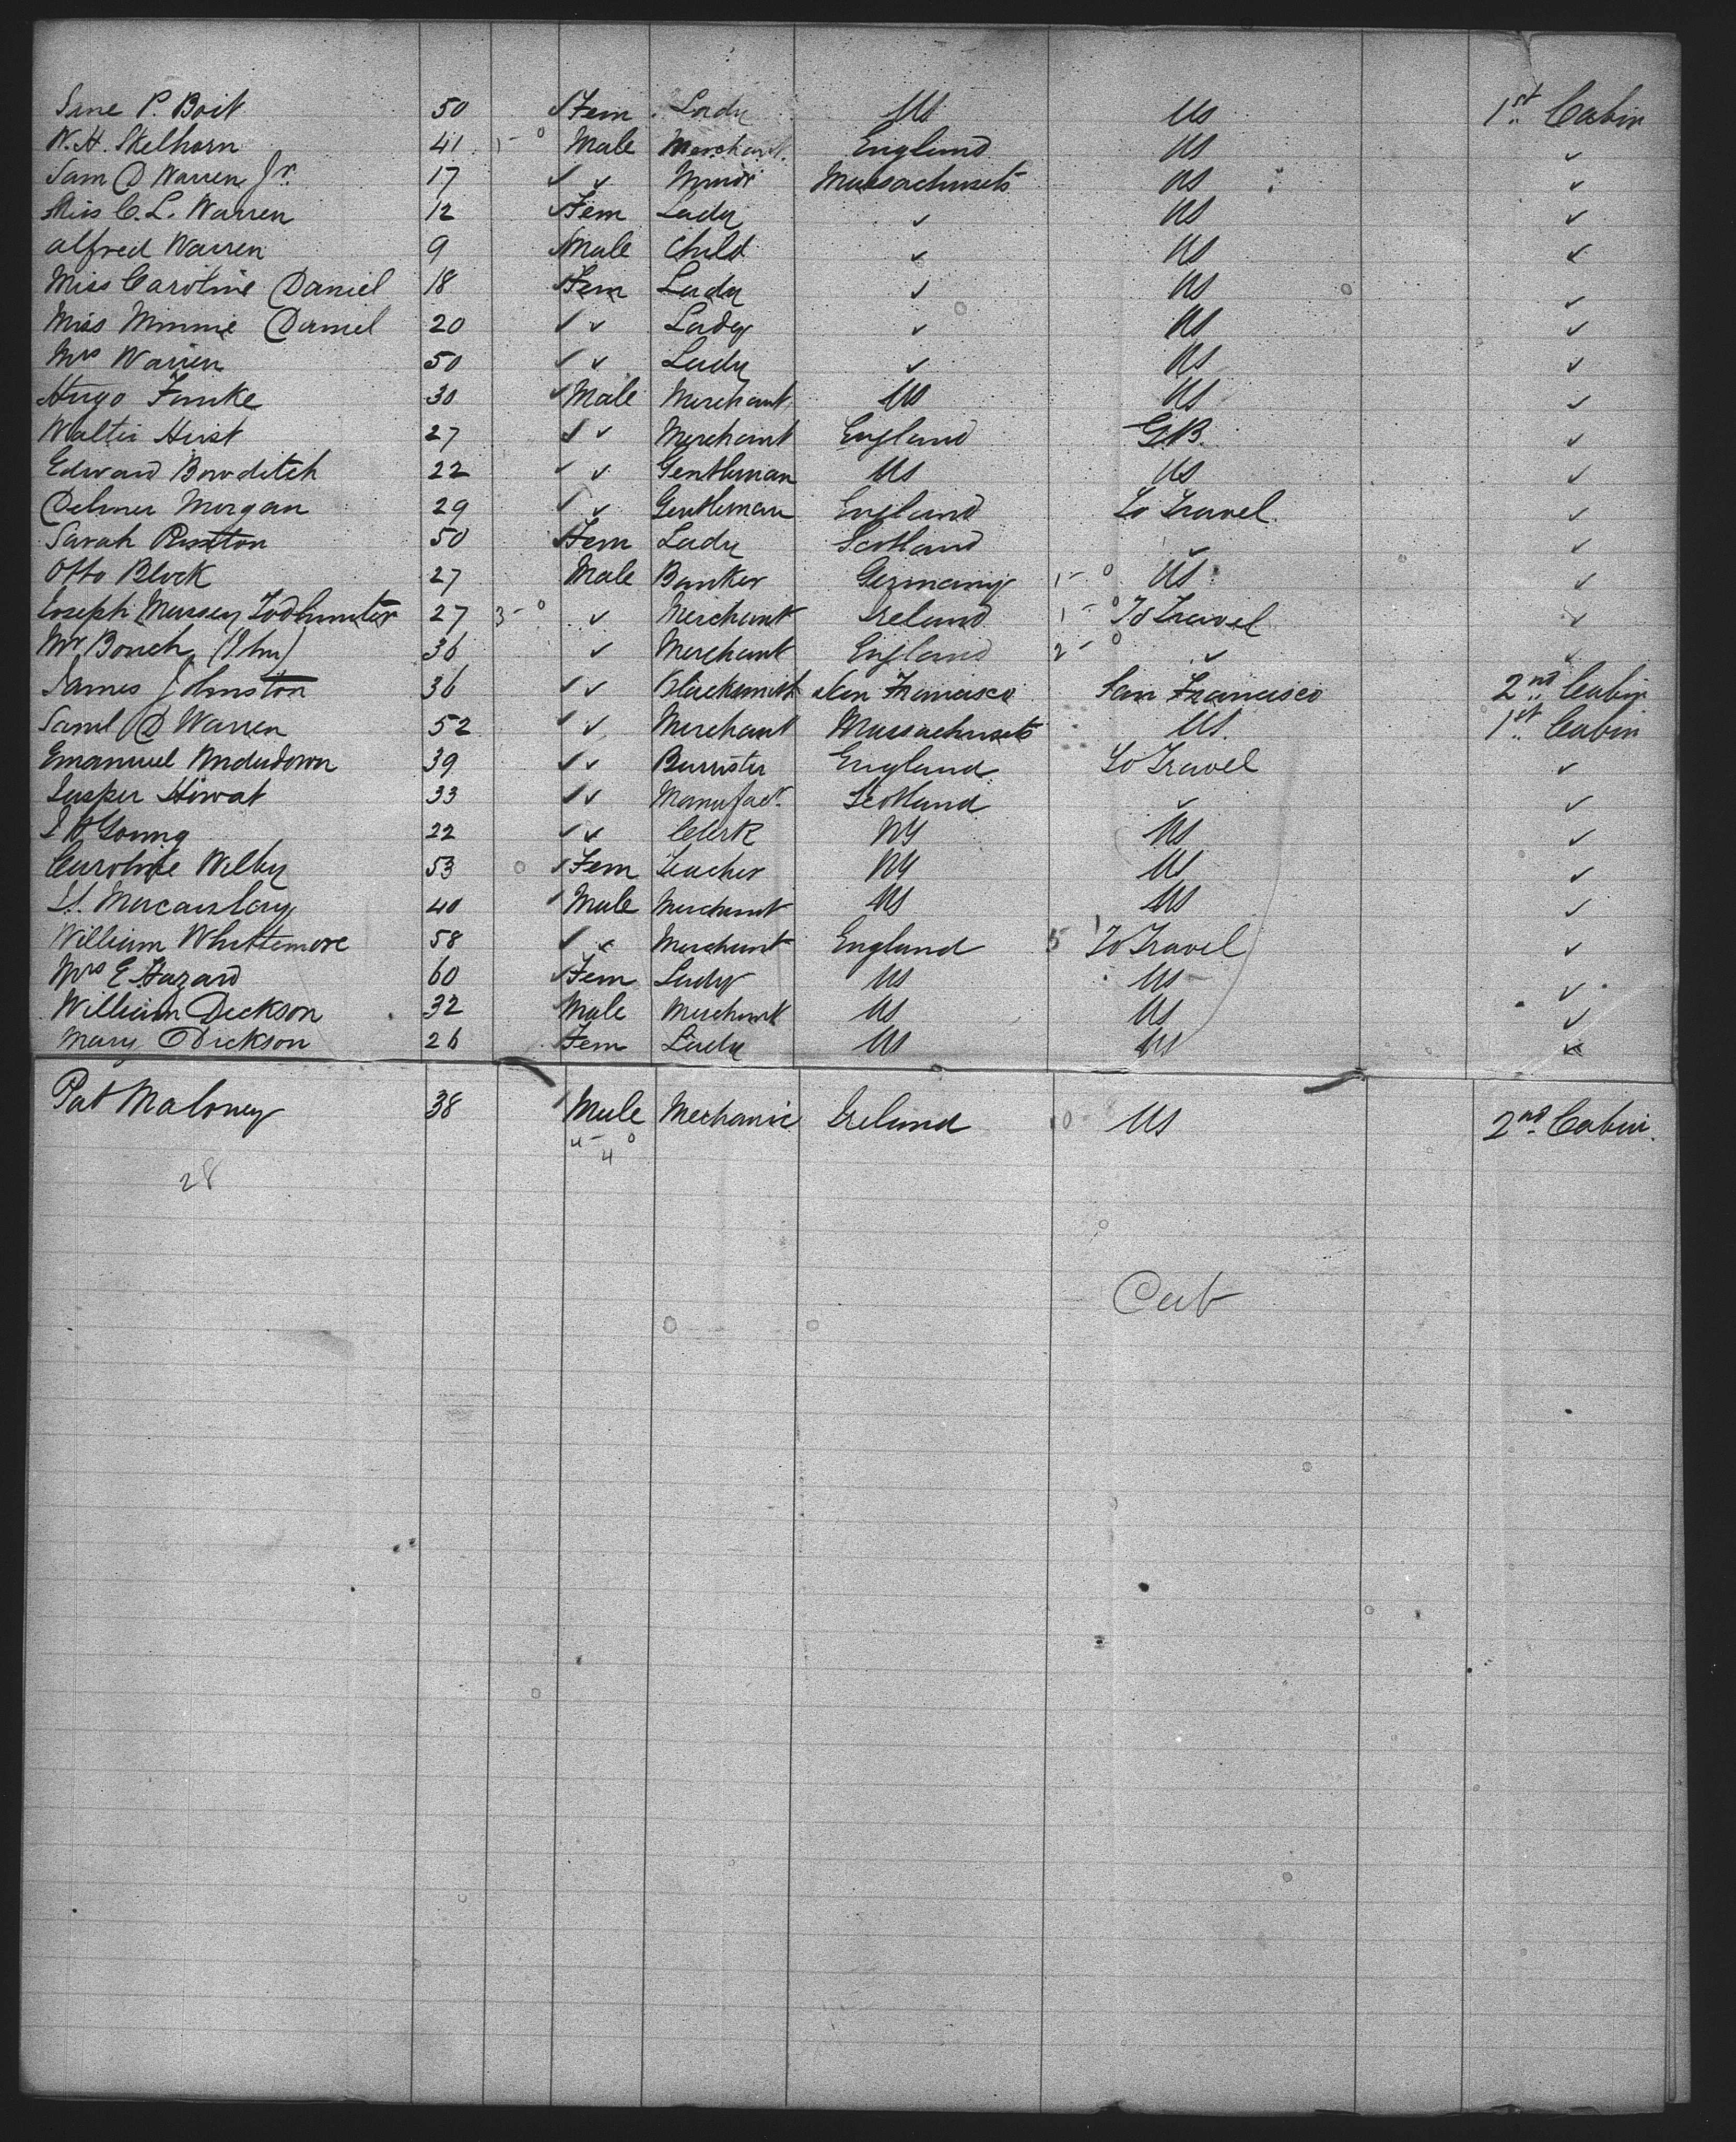 Jane P. Boit 50 ✓ Fem Lady US US 1st Cabin
W. H. Skelhorn 41 Male Merchant England US ✓
Sam D Warren Jr. 17 ✓ ✓ Minor Massachusets US ✓
Miss C. L. Warren 12 ✓ Fem Lady ✓ US ✓
Alfred Warren 9 ✓ Male Child ✓ US ✓
Miss Caroline Daniel 18 ✓ Fem Lady ✓ US ✓
Miss Minnie Daniel 20 ✓ ✓ Lady ✓ US ✓
Mrs Warren 50 ✓ ✓ Lady ✓ US ✓
Hugo Funke 30 ✓ Male Merchant US US ✓
Walter Hirst 27 ✓ ✓ Merchant England GB ✓
Edward Bowditch 22 ✓ ✓ Gentleman US US ✓
Delmer Morgan 29 ✓ ✓ Gentleman England To Travel ✓
Sarah 50 ✓ Fem Lady Scotland ✓ ✓
Otto Block 27 Male Banker Germany US ✓
Joseph Massey Todhunter 27 3 ✓ Merchant Ireland 1 To Travel ✓
Mr Bouch 36 ✓ Merchant England 2 ✓ ✓
James Johnston 36 ✓ ✓ Blacksmith San Francisco San Francisco 2nd Cabin
Saml D Warren 52 ✓ ✓ Merchant Massachusets US 1st Cabin
Emanuel Underdown 39 ✓ ✓ Barrister England To Travel ✓
Jasper Howat 33 ✓ ✓ Manufact. Scotland ✓ ✓
Young 22 ✓ ✓ Clerk NY US ✓
Caroline Wilby 53 ✓ Fem Teacher NY US ✓
Macaulay 40 ✓ Male Merchant US US ✓
William Whittemore 58 ✓ ✓ Merchant England 5 To Travel ✓
Mrs E Hazard 60 ✓ Fem Lady US US ✓
William Dickson 32 Male Merchant US US ✓
Mary Dickson 26 Fem Lady US US ✓
Pat Maloney 38 Male Mechanic Ireland US 2nd Cabin
4
28